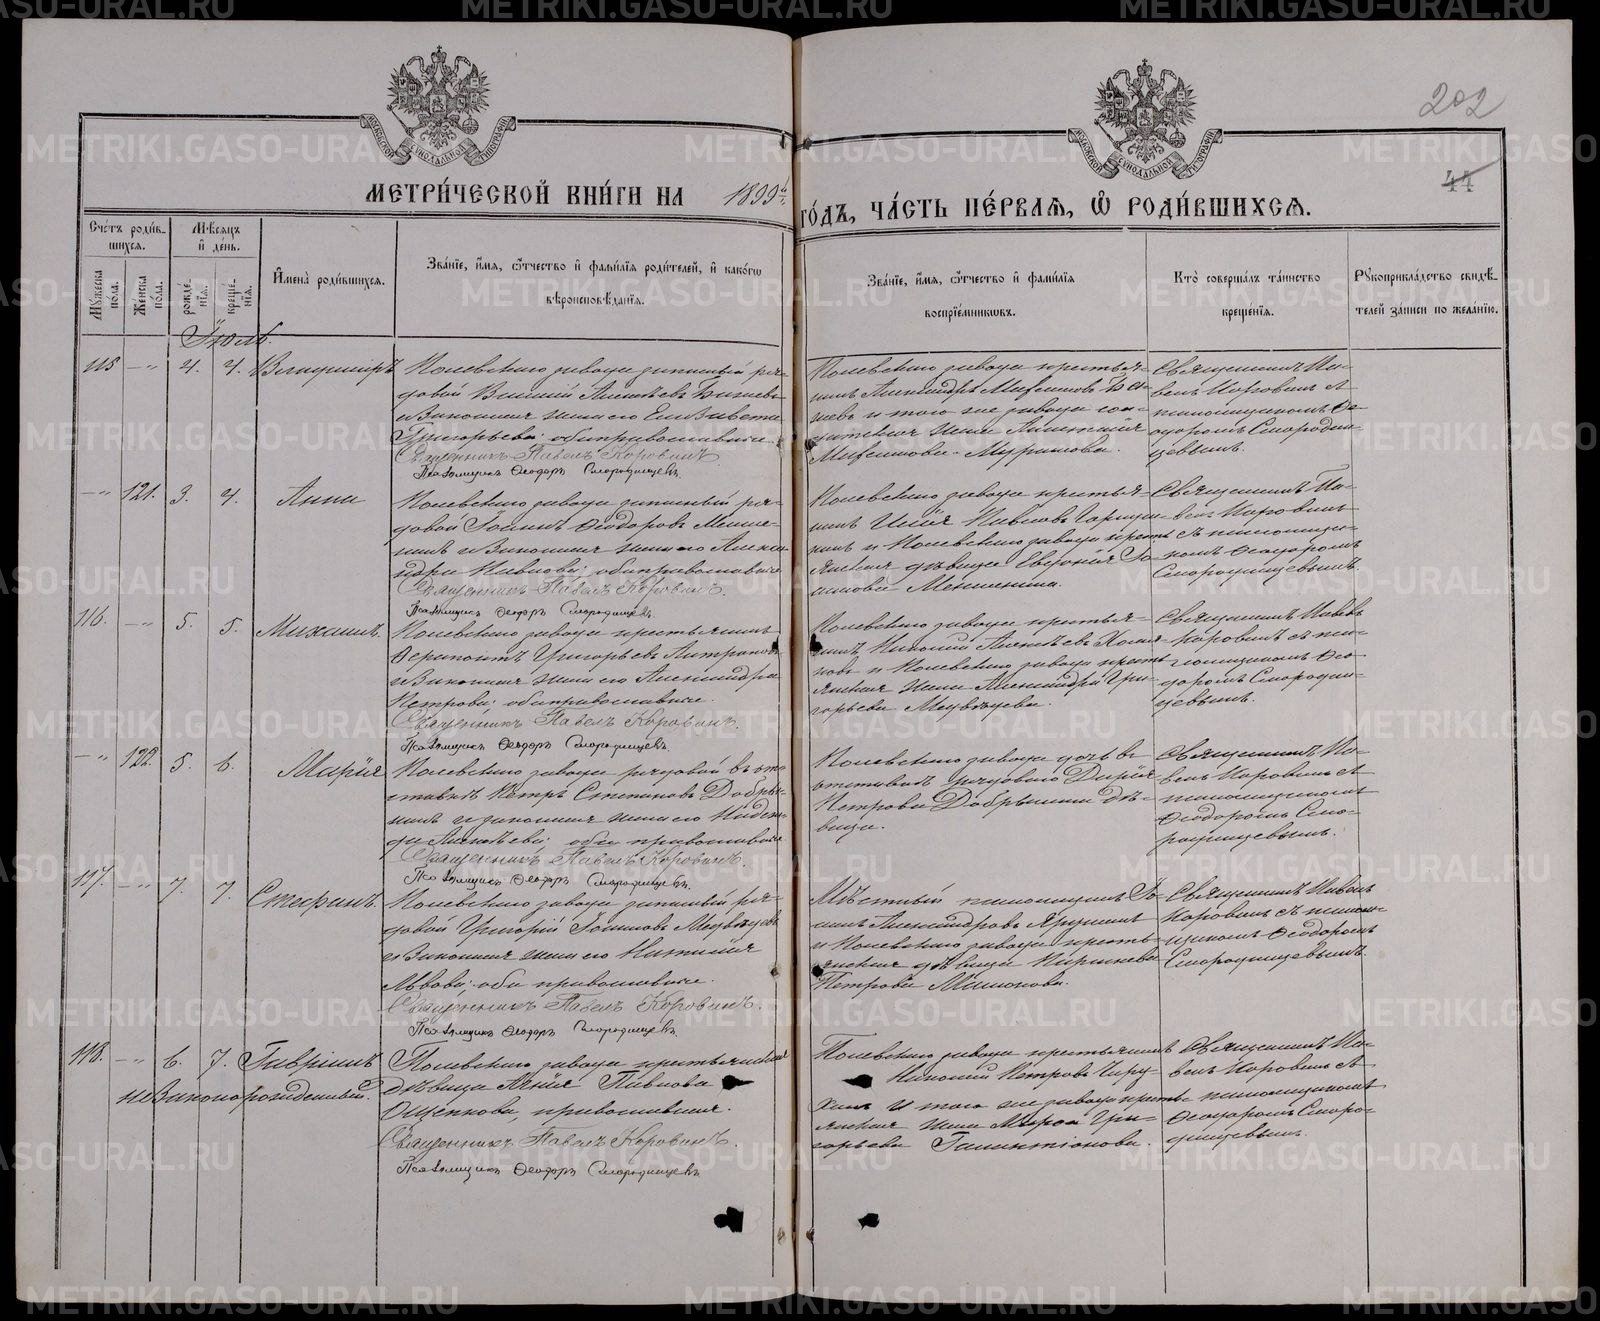 202
44
МЕТРИ́ЧЕСКОЙ КНИ́ГИ НА 1899й
ГО́ДЪ, ЧА́СТЬ ПЕ́РВАЯ, Ѡ РОДИ́ВШИХСЯ.
Счéтъ роди́в-
шихся.
Мѣ́сяцъ
и҆ де́нь.
Мꙋжеска по́ла.
Же́нска по́ла.
рожде́-нїя.
креще́-нїя.
И҆мена̀ роди́вшихся.
Зва́нїе, и҆́мя, ѻ҆́тчество и҆ фами́лїя роди́телей, и҆ како́гѡ
вѣроисповѣ́данїя.
Зва́нїе, и҆́мя, ѻ҆́тчество и҆ фами́лїя
воспрїе́мникѡвъ.
Кто̀ соверша́лъ та́инство
креще́нїя.
Рꙋкоприкла́дство свидѣ́-
телей за́писи по жела́нїю.
Іюль.
115 — „ 4. 4. Владимиръ
Полевскаго завода запасный ря-
довой Василий Алексѣевъ
и Законная жена его Елизавета
Григорьева; оба православные.
Священникъ Павелъ Коровинъ.
Псаломщикъ Ѳеодоръ Смородинцевъ.
Полевскаго завода крестья-
нинъ Александръ Маѯимовъ Ба-
шевъ и того же завода сол-
датская жена
Маѯимова
Священникъ Па-
велъ Коровинъ съ
псаломщикомъ Ѳе-
одоромъ Смородин-
цевымъ.
— „ 121. 3. 4. Анна
Полевскаго завода запасный ря-
довой Іоаннъ Ѳеодоровъ Меньше-
нинъ и Законная жена его Алекса-
ндра Павлова; оба православные.
Священникъ Павелъ Коровинъ.
Псаломщикъ Ѳеодоръ Смородинцевъ.
Полевскаго завода крестья-
нинъ Илія
нинъ и Полевскаго завода кресть-
янская дѣвица Евдокія Іо-
аннова Меньшенина.
Священникъ Па-
велъ Коровинъ
съ псаломщи-
комъ Ѳеодоромъ
Смородинцевымъ.
116. — „ 5. 5. Михаилъ.
Полевскаго завода крестьянинъ
Ѳерапонтъ Григорьевъ
и Законная жена его Александра
Петрова; оба православные.
Священникъ Павелъ Коровинъ.
Псаломщикъ Ѳеодоръ Смородинцевъ.
Полевскаго завода крестья-
нинъ Николай Алексѣевъ
и Полевскаго завода кресть-
янская жена Александра Гри-
горьева Медвѣдева.
Священникъ Павелъ
Коровинъ съ пса-
ломщикомъ Ѳео-
доромъ Смородин-
цевымъ.
— „ 122. 5. 6. Марія
Полевскаго завода рядовой въ от-
ставкѣ Петръ Степановъ Добры-
нинъ и законная жена его Надеж-
да Алексѣева; оба православные.
Священникъ Павелъ Коровинъ.
Псаломщикъ Ѳеодоръ Смородинцевъ.
Полевскаго завода дочь въ
отставкѣ рядоваго Дарія
Петрова Добрынина дѣ-
вица.
Священникъ Па-
велъ Коровинъ съ
псаломщикомъ
Ѳеодоромъ Смо-
родинцевымъ.
117. — „ 7. 7. Стефанъ.
Полевскаго завода запасный ря-
довой Григорій Іоанновъ Медвѣдевъ
и Законная жена его Наталія
Львова; оба православные.
Священникъ Павелъ Коровинъ.
Псаломщикъ Ѳеодоръ Смородинцевъ.
Мѣстный псаломщикъ Іо-
аннъ Александровъ
и Полевскаго завода кресть-
янская дѣвица Параскева
Петрова
Священникъ Павелъ
Коровинъ съ псалом-
щикомъ Ѳеодоромъ
Смородинцевымъ.
118. — „ 6. 7. Гавріилъ
незаконорожденный.
Полевскаго завода крестьянская
дѣвица Павлова
Ощепкова, православная.
Священникъ Павелъ Коровинъ.
Псаломщикъ Ѳеодоръ Смородинцевъ.
Полевскаго завода крестьянинъ
Николай Петровъ
и того же завода кресть-
янская жена Гри-
горьева Галактіонова.
Священникъ Па-
велъ Коровинъ съ
псаломщикомъ
Ѳеодоромъ Сморо-
динцевымъ.